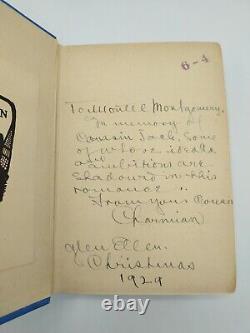 N
6-4
To Monte C Montgomery,
In memory of
Cousin Jack, some
of whose ideals
and
ambitions are
shadowed in this
romance ..
From your Cousin
Charmian
Glen Ellen
Christmas
1929